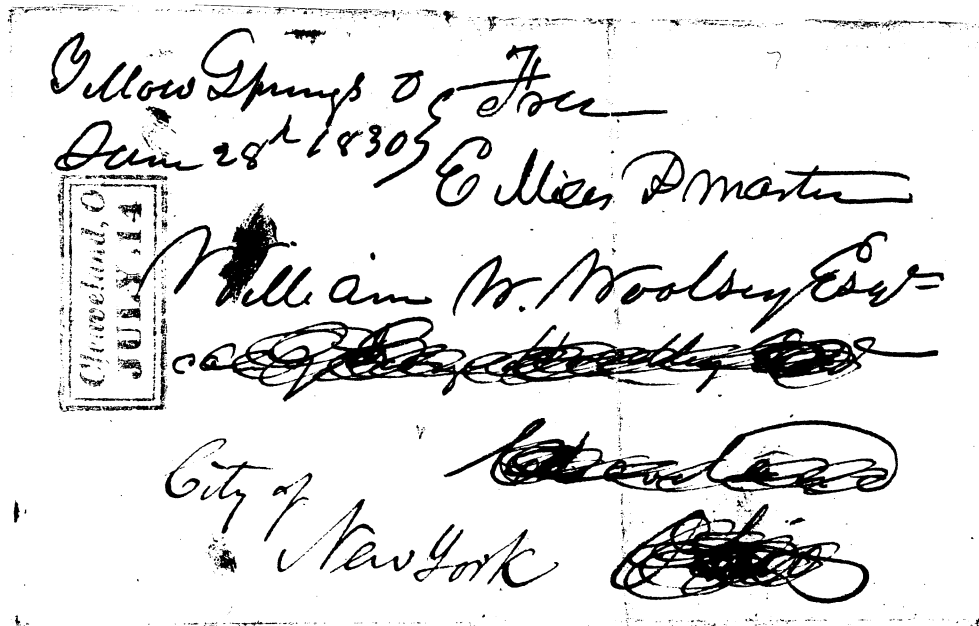 Yellow Springs O
June 28th 1830
Free
E Mills P Master
Cleaveland, O
JULY 14
William W. Woolsey Esqr
City of
New York